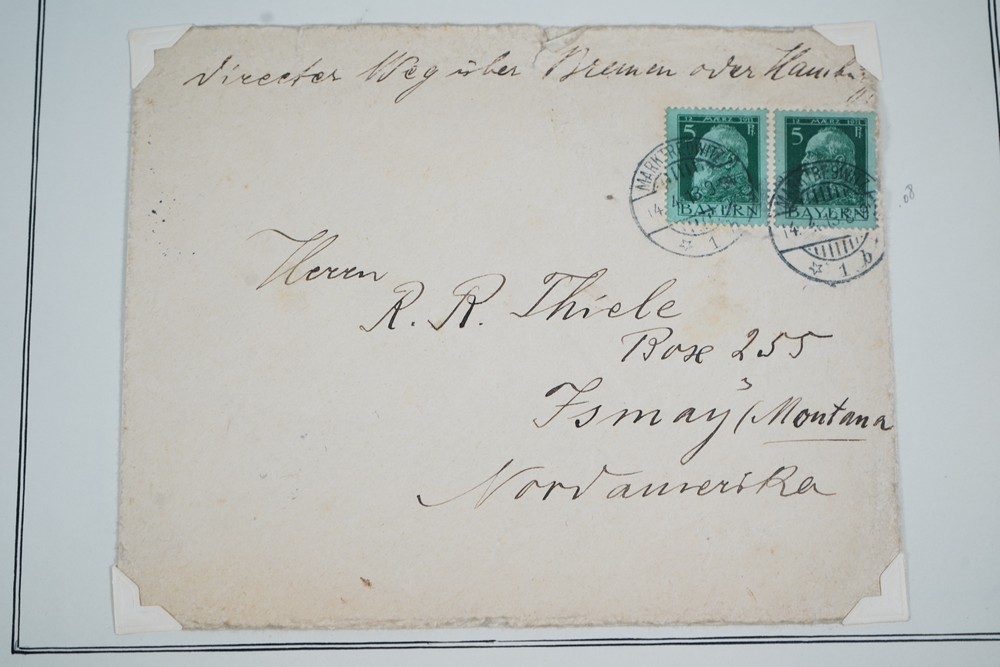 directer Weg über Bremen oder Hamburg
12 MÄRZ 1911
5 Pf
BAYERN
12 MÄRZ 1911
5 Pf
BAYERN
1
1 b
.08
Herrn
R. R. Thiele
Box 255
Ismay (Montana
Nordamerika